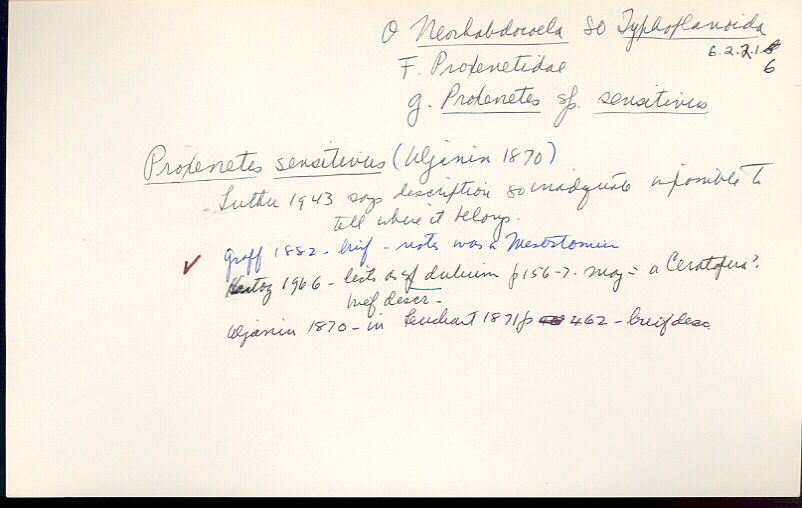 O Neorhabdocoela SO Typhoplanoida
6.2.2.1.
6
F. Proxenetidae
g. Proxenetes sp. sensitivus
Proxenetes sensitivus (Uljanin 1870)
Luther 1943 says description so inadequate impossible to
tell where it belongs.
✓ Graff 1882 - brief - notes was a Mesostomum
1966 - lists as sp dubium p156-7. may = a Ceratopera?
brief descr -
Uljanin 1870 - in Leuckart 1871 p 462 - brief desc